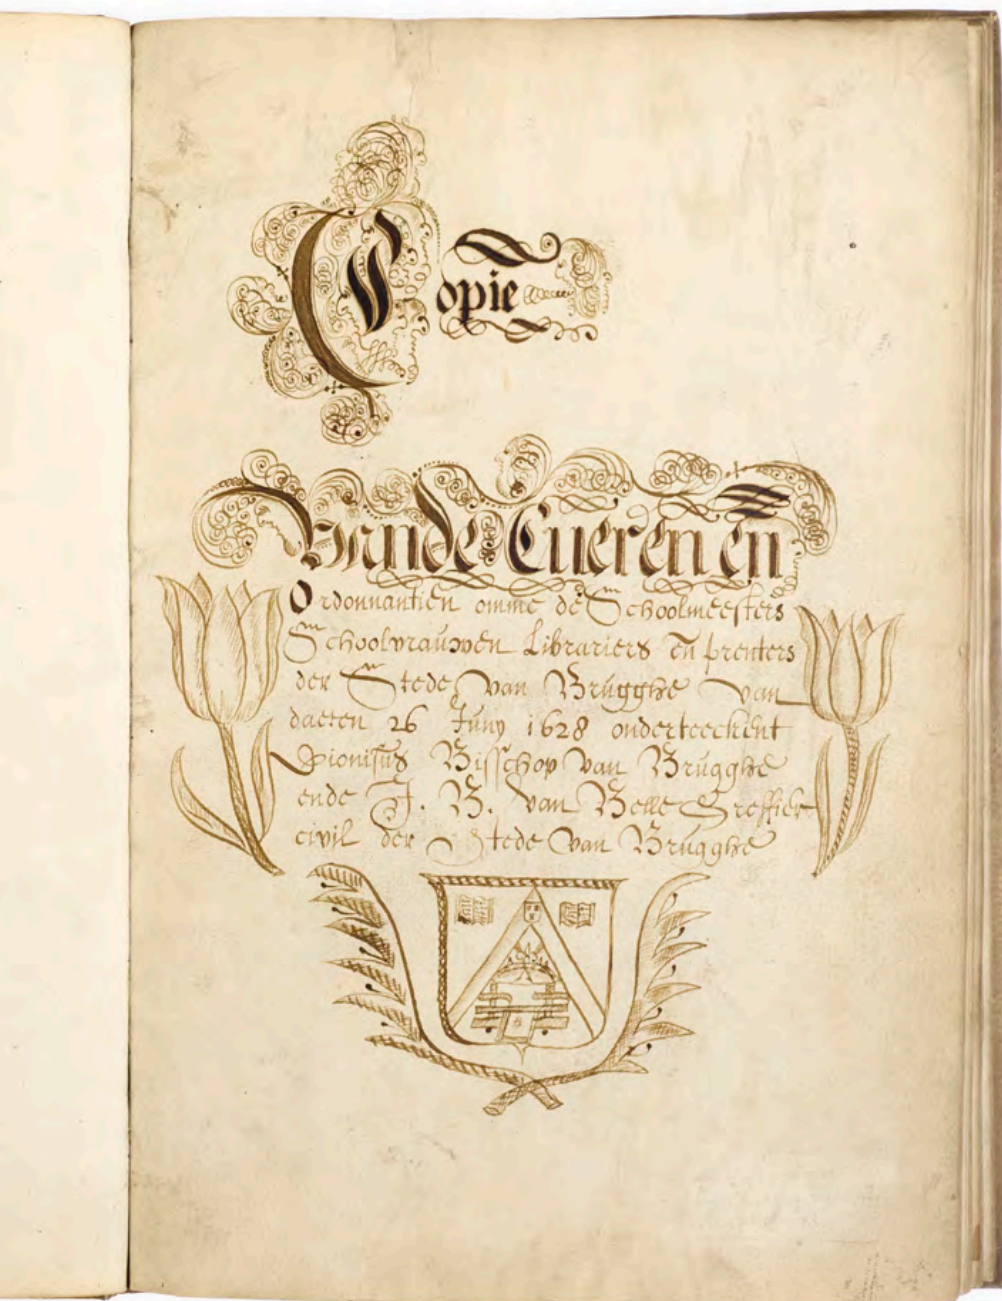 Copie
Vande Cueren en̄
Ordonnantien omme de Schoolmeesters
Schoolvrauwen Librariers en̄ prenters
der Stede van Brugghe van
daeten 26 Juny 1628 onderteeckent
Dionisius Bisschop van Brugghe
ende J. B. van Belle Greffier
civil der Stede van Brugghe